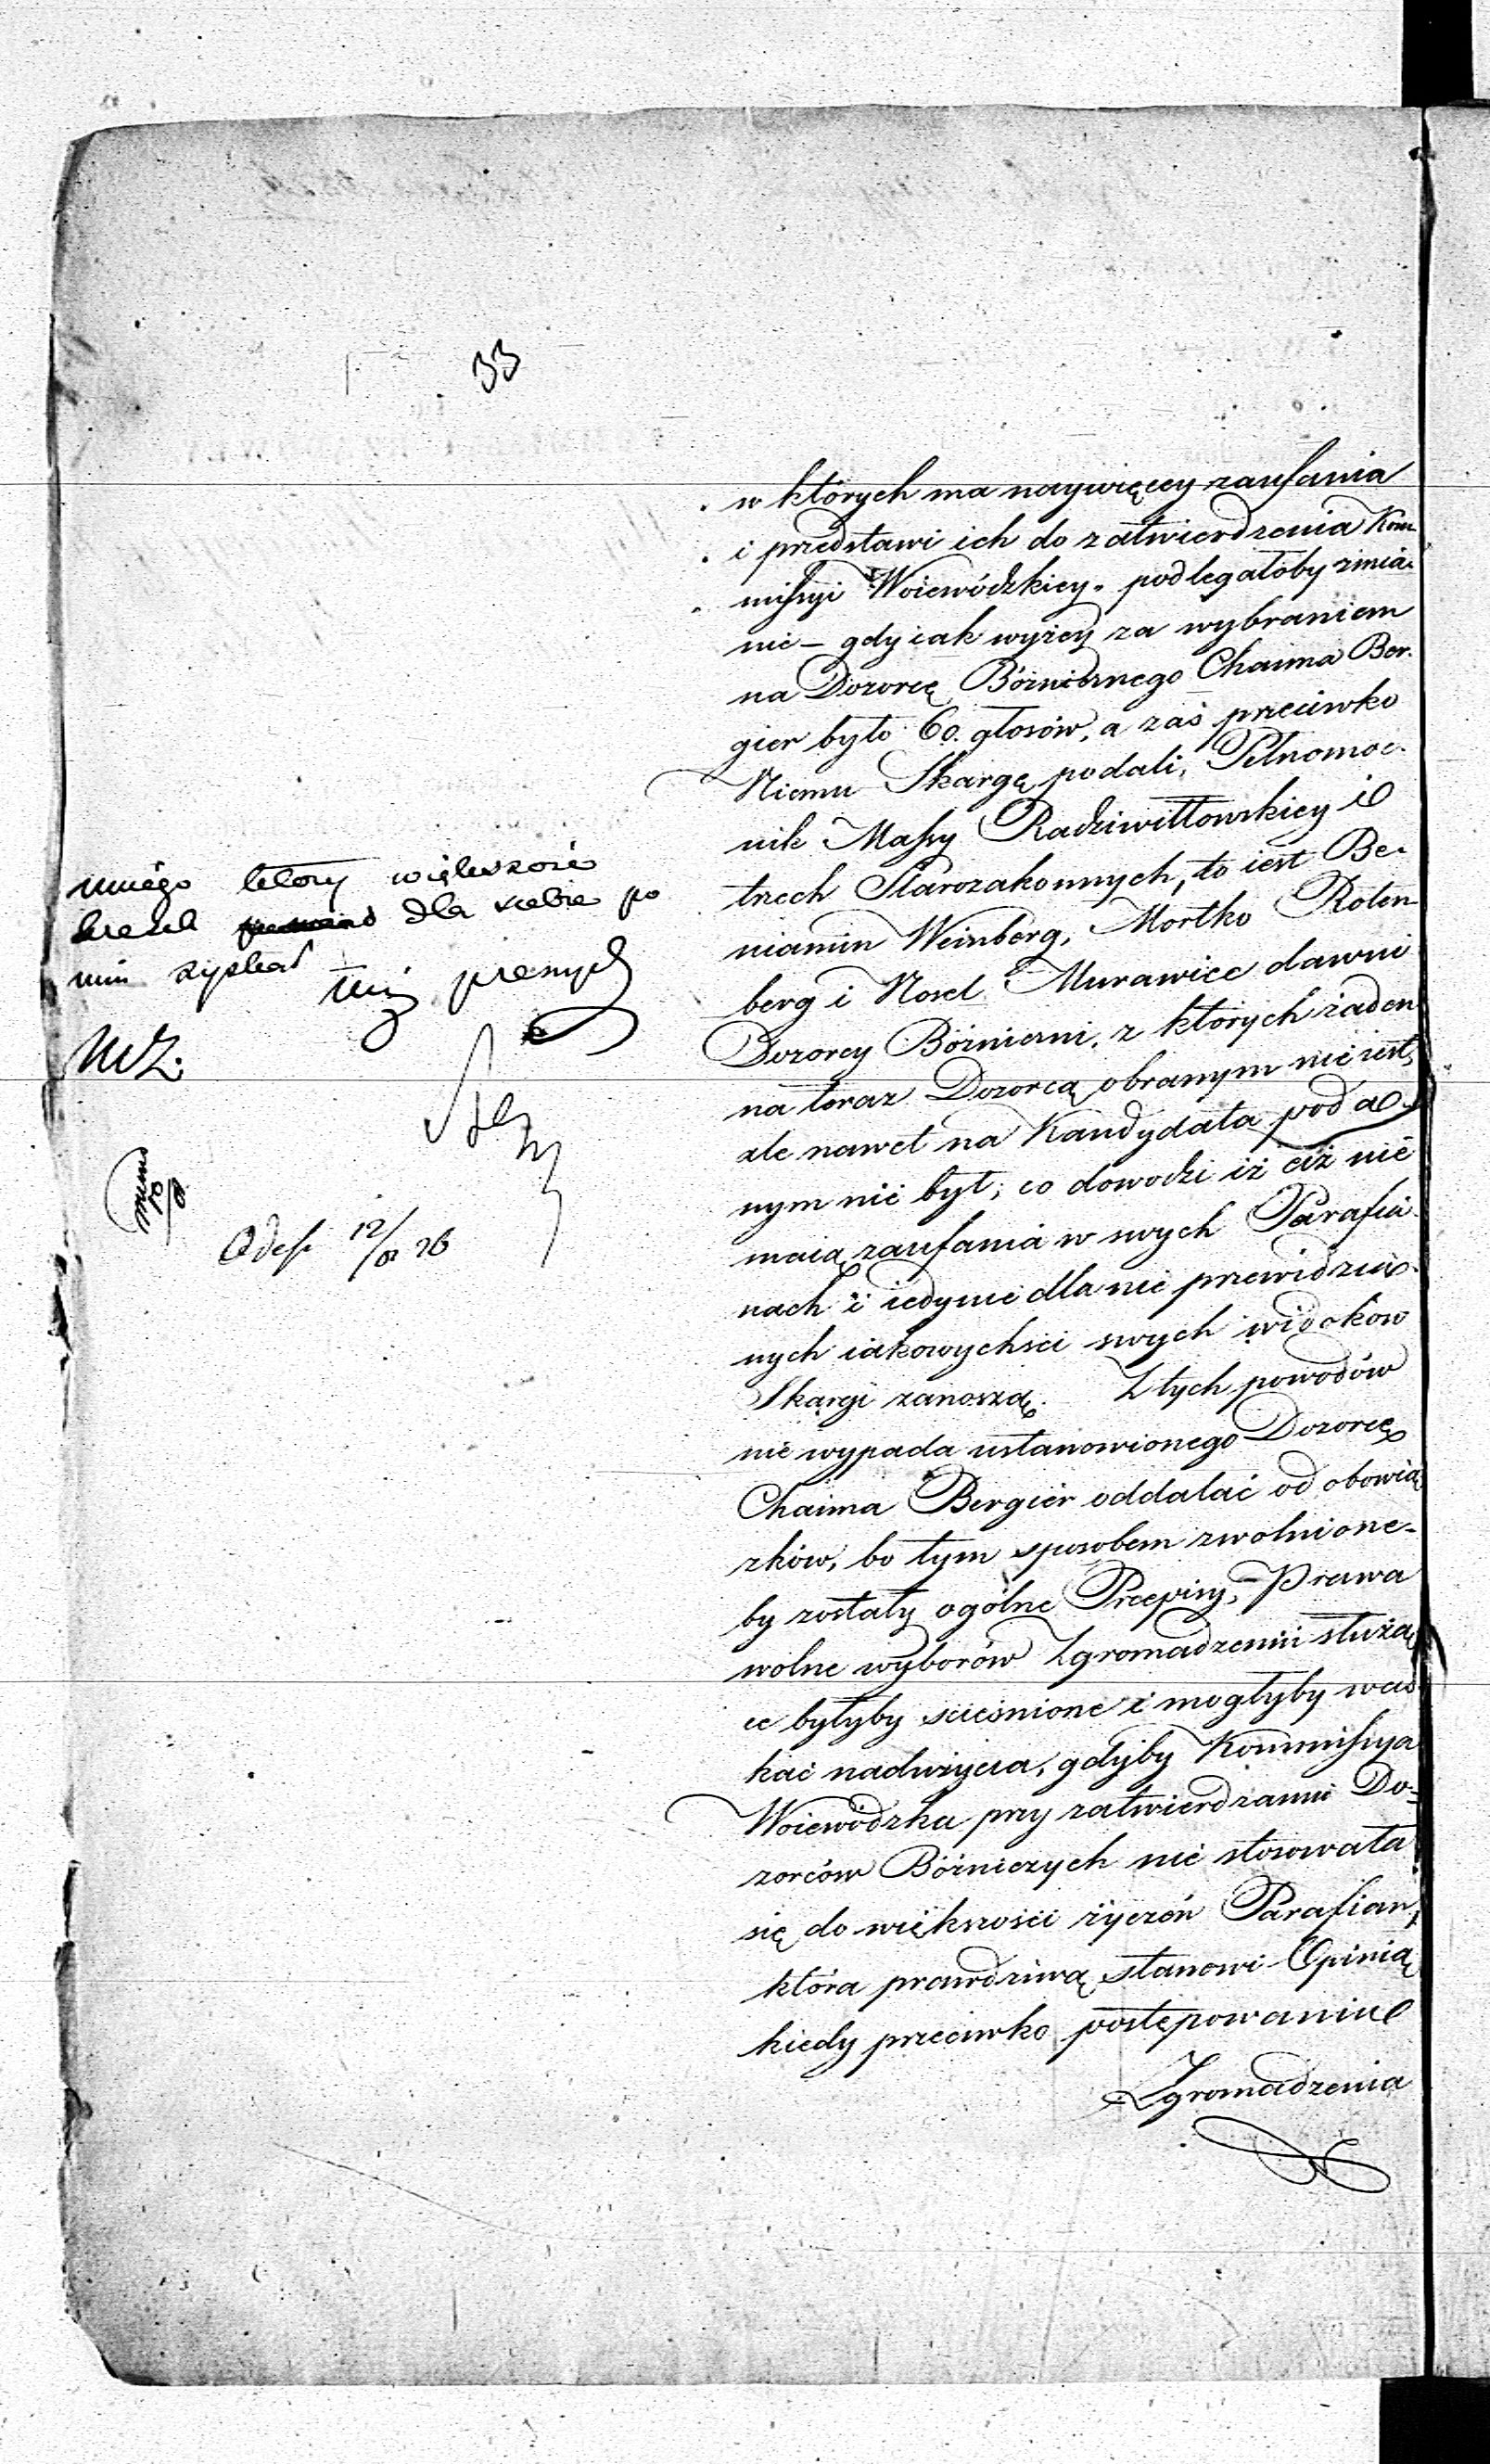 33
w których ma naywięcey zaufania
i przedstawi ich do zatwierdzenia Kom
missyi Woiewódzkiey„ podlegałoby zmia-
nie – gdy iak wyżey za wybraniem
na Dozorcę Bóźnicznego Chaima Ber-
gier było 60. głosów, a zaś przeciwko
Niemu Skargę podali, Pełnomoc-
nik Massy Radziwiłłowskiey i
trzech Starozakonnych, to iest Be-
niamin Weinberg, Mortko Roten
berg i Nosel Murawiec dawni
Dozorcy Bóźniczni, z których żaden
na teraz Dozorcą obranym nie iest,
ale nawet na Kandydata poda-
nym nie był; co dowodzi iż ciż nie
maią zaufania w swych Parafia-
nach i iedynie dla nie przewidzia-
nych iakowychsci swych widoków
Skargi zanoszą. Z tych powodów
nie wypada ustanowionego Dozorcę
Chaima Bergier oddalać od obowią
zków, bo tym sposobem zwolnione-
by zostały ogólne Przepisy, Prawa
wolne wyborów Zgromadzeniu służą
ce byłyby scieśnione i mogłyby
kać nadużycia, gdyby Kommissya
Woiewódzka przy zatwierdzaniu Do-
zorców Bóźniczych nie stosowała
się do większości życzeń Parafian,
która prawdziwą stanowi Opinią
kiedy przeciwko postępowaniu
Zgromadzenia
który większość
kresek dla siebie po
zyskał
Odess 12/8 26